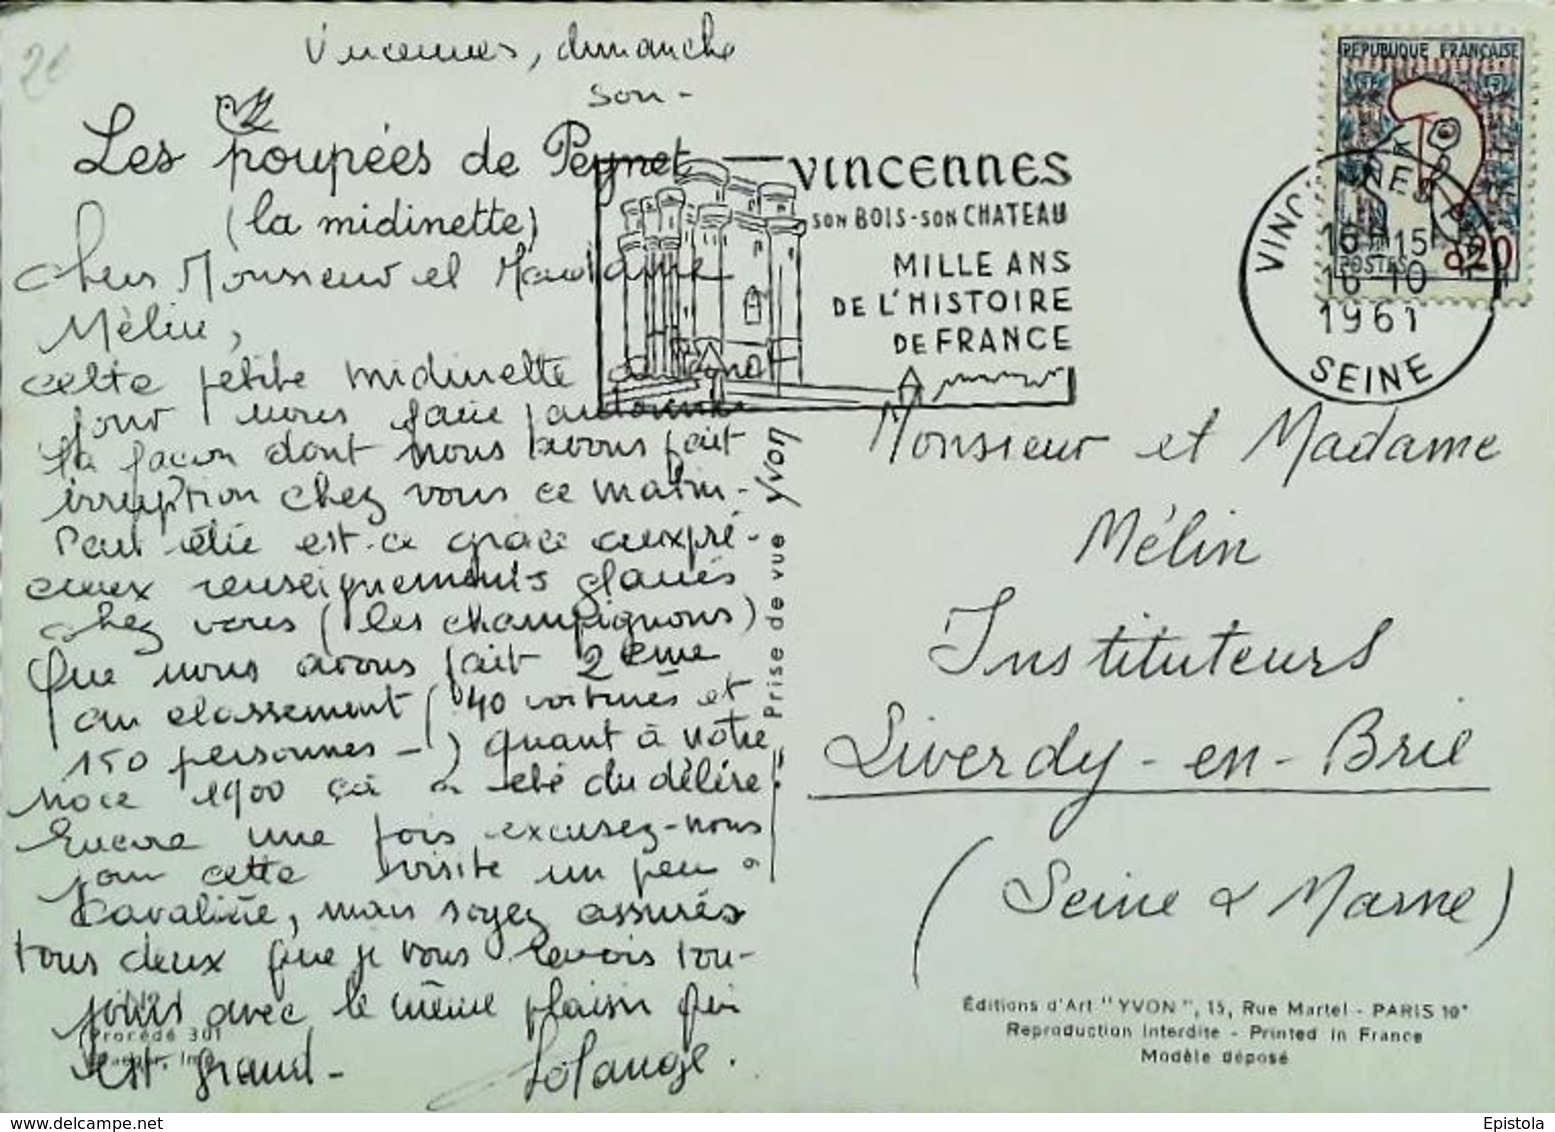 26
Vincennes, dimanche
soir -
Les poupées de Peynet
(la midinette)
Chers Monsieur et Madame
Mélin,
cette petite midinette
pour nous faire pardonner
la façon dont nous avons fait
irruption chez vous ce matin -
Peut être est-ce grâce aux pré-
cieux renseignements glanés
chez vous (les champignons)
que nous avons fait 2ème
au classement (40 voitures et
150 personnes -) quant à notre
noce 1900 ça a été du délire
Encore une fois excusez-nous
pour cette visite un peu
cavalière, mais soyez assurés
tous deux que je vous revois tou-
jours avec le même plaisir qui
est grand - Solange.
Procédé 301
Prise de vue Yvon
VINCENNES
SON BOIS - SON CHATEAU
MILLE ANS
DE L'HISTOIRE
DE FRANCE
REPUBLIQUE FRANÇAISE
POSTES 0,20
VINCENNES
16H15
16-10
1961
SEINE
Monsieur et Madame
Mélin
Instituteurs
Liverdy-en-Brie
(Seine & Marne)
Éditions d'Art "YVON", 15, Rue Martel - PARIS 10e
Reproduction Interdite - Printed in France
Modèle déposé
Epistola